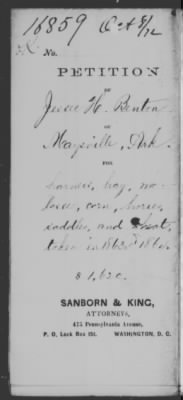 16859 Oct 8/72
No.
PETITION
OF
Jesse H. Benton
OF
Maysville, Ark.
FOR
harness, hay, mo-
lasses, corn, horses,
saddles, and
taken in 1862
$ 1,620.
SANBORN & KING,
ATTORNEYS,
475 Pennsylvania Avenue,
P. O. Lock Box 151. WASHINGTON, D. C.